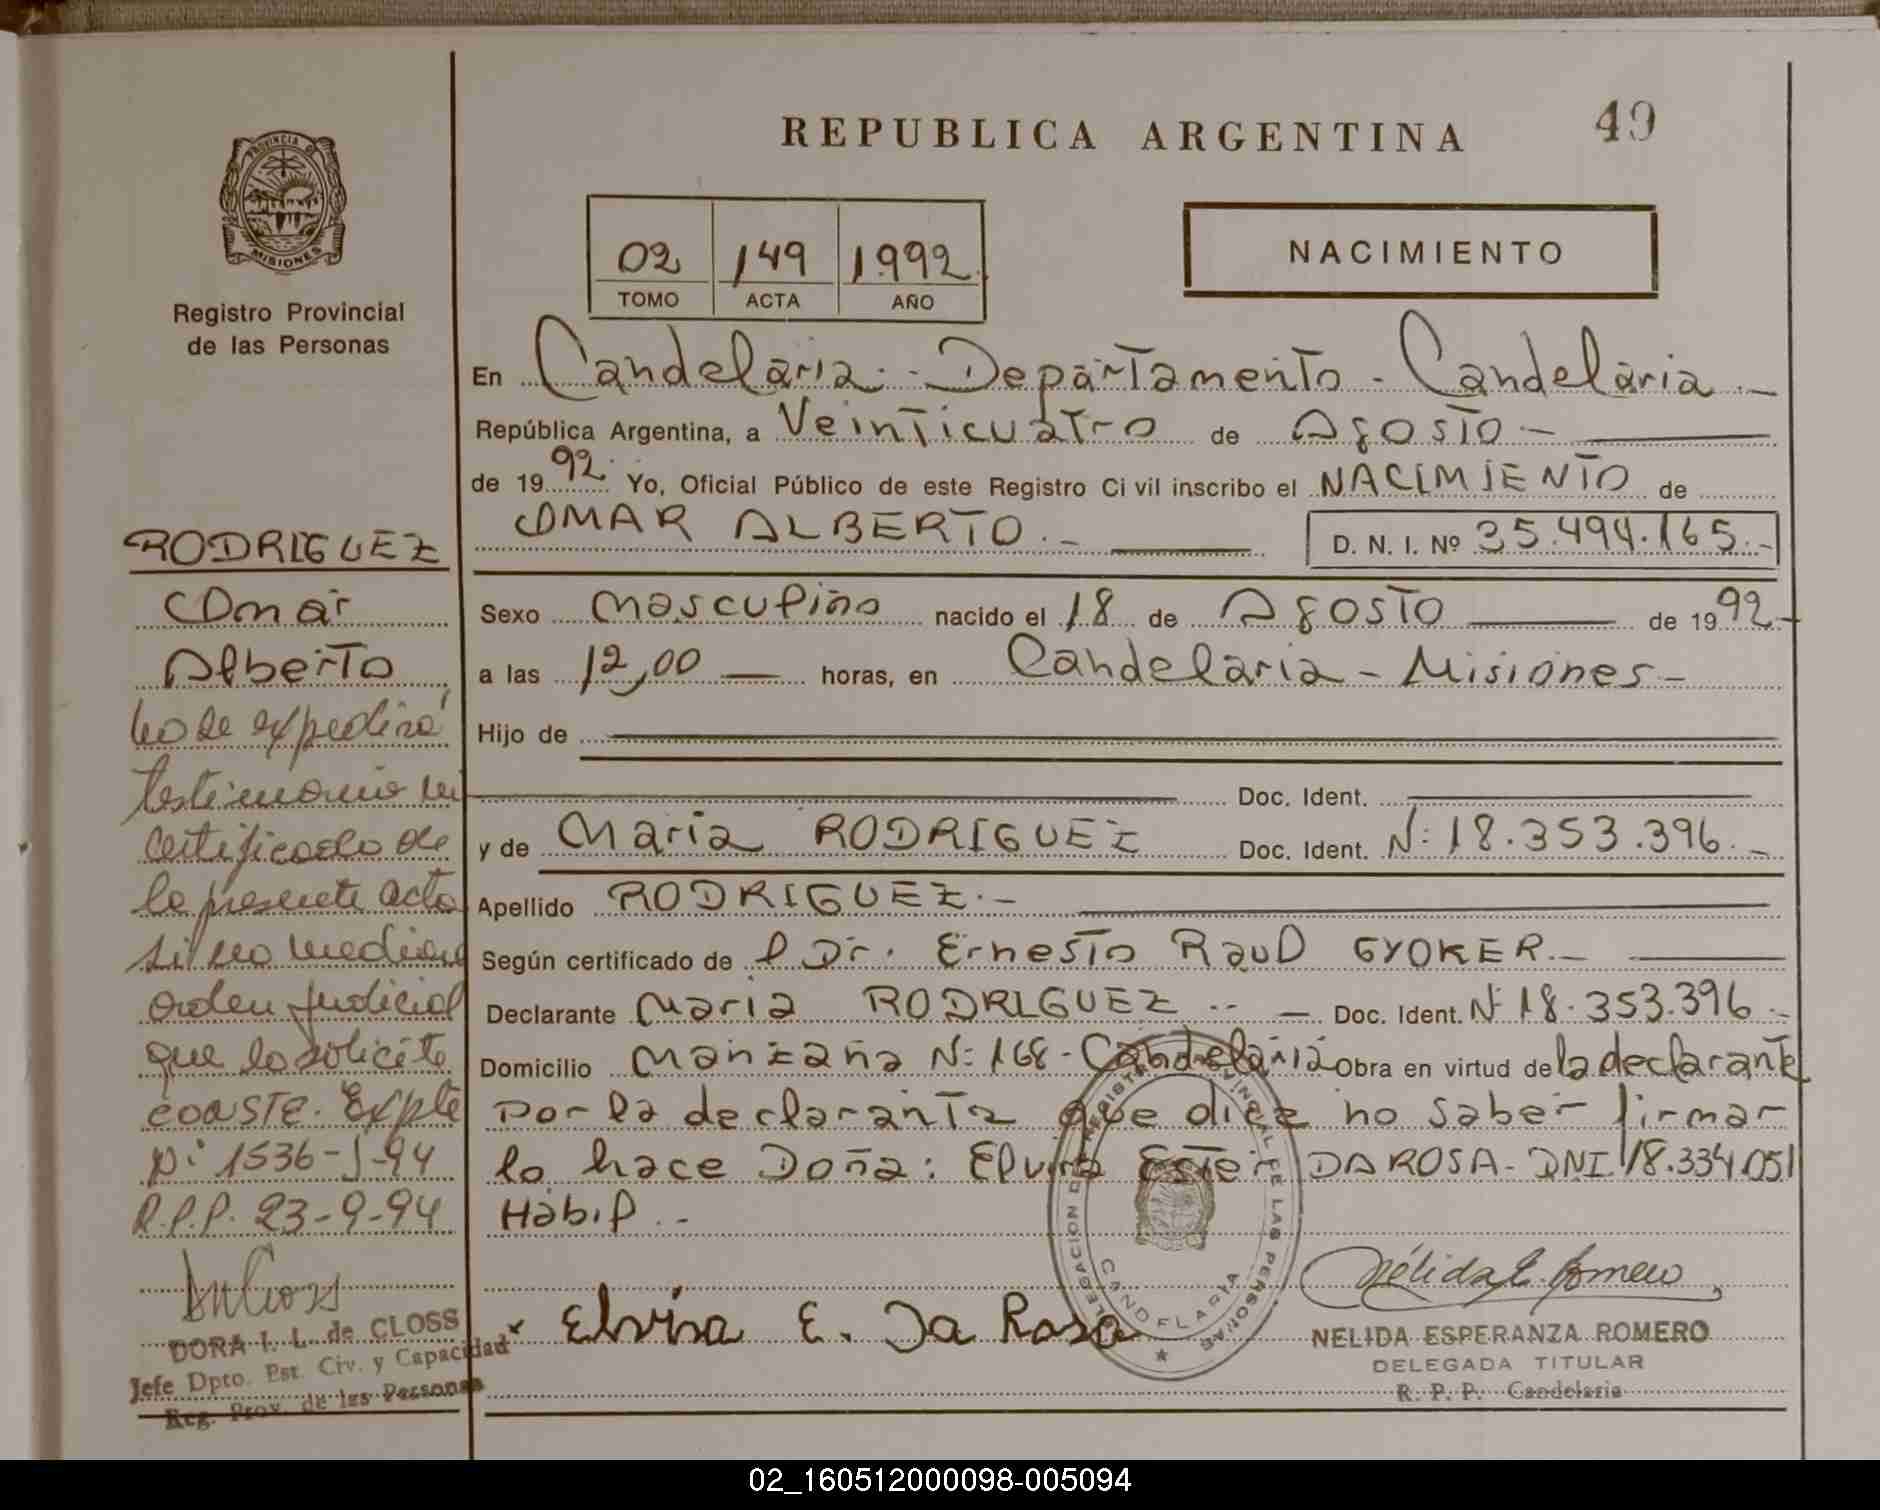 49
REPUBLICA ARGENTINA
PROVINCIA D MISIONES
Registro Provincial
de las Personas
02 149 1992
TOMO ACTA AÑO
NACIMIENTO
En Candelaria - Departamento - Candelaria.-
República Argentina, a Veinticuatro de Agosto -
de 1992. Yo, Oficial Público de este Registro Ci vil inscribo el NACIMIENTO de
OMAR ALBERTO.- D. N. I. Nº 35.494.165.-
Sexo Masculino nacido el 18 de Agosto de 1992-
a las 12,00 — horas, en Candelaria - Misiones -
Hijo de
Doc. Ident.
y de Maria RODRIGUEZ Doc. Ident. N: 18.353.396.-
Apellido RODRIGUEZ.-
Según certificado de l Dr. Ernesto Raul GYOKER.-
Declarante Maria RODRIGUEZ.- — Doc. Ident. Nº 18.353.396.-
Domicilio Manzana N: 168 - Candelaria Obra en virtud de la declarante
Por la declaranta que dice no saber firmar
lo hace Doña: Elvira Ester DA ROSA - DNI. 18.334.051
Hábil.-
Elvira E. Da Rosa
Nélida E. Romero
NELIDA ESPERANZA ROMERO
DELEGADA TITULAR
R. P. P. Candelaria
DELEGACION REGISTRO PROVINCIAL DE LAS PERSONAS
CANDELARIA
RODRIGUEZ
Omar
Alberto
No se expedirá
testimonio ni
certificado de
la presente acta
si no media
orden judicial
que lo solicite
CONSTE. Expte
Nº 1536-J-94
R.P.P. 23-9-94
DORA I. L. de CLOSS
Jefe Dpto. Est. Civ. y Capacidad
Reg. Prov. de las Personas
02_160512000098-005094